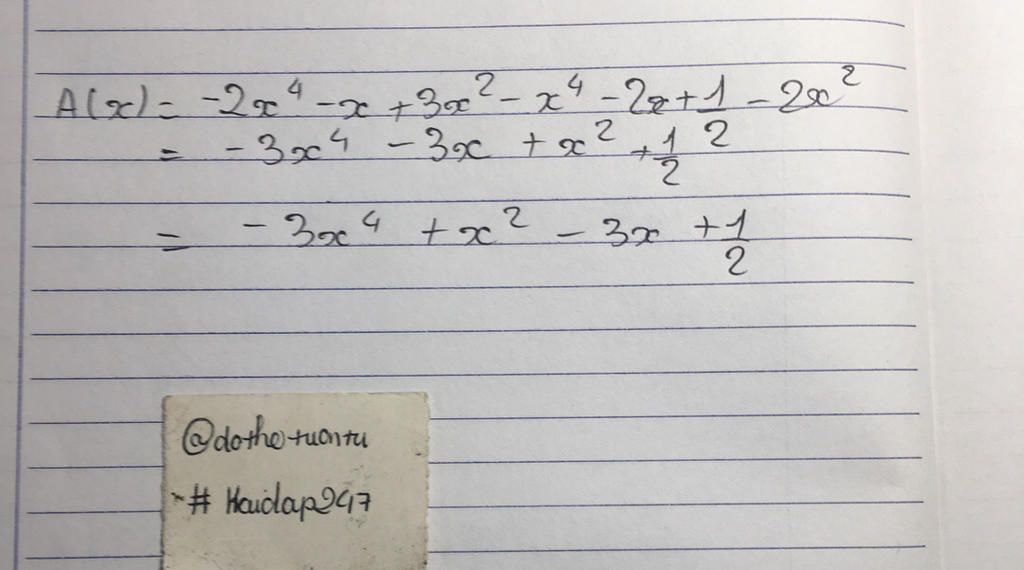 A(x) = -2x⁴ - x + 3x² - x⁴ - 2x + 1/2 - 2x²
= -3x⁴ - 3x + x² + 1/2
= -3x⁴ + x² - 3x + 1/2
@dothetuantu
# Hoidap247